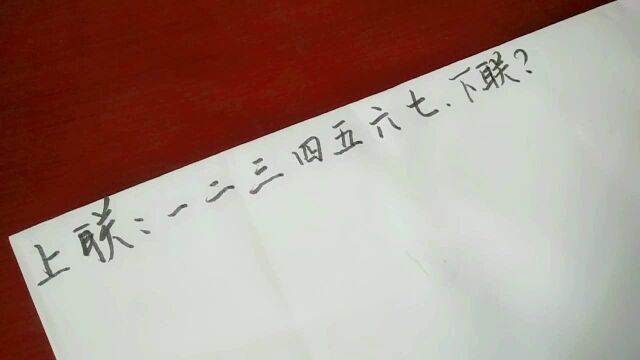 上联:一二三四五六七、下联?